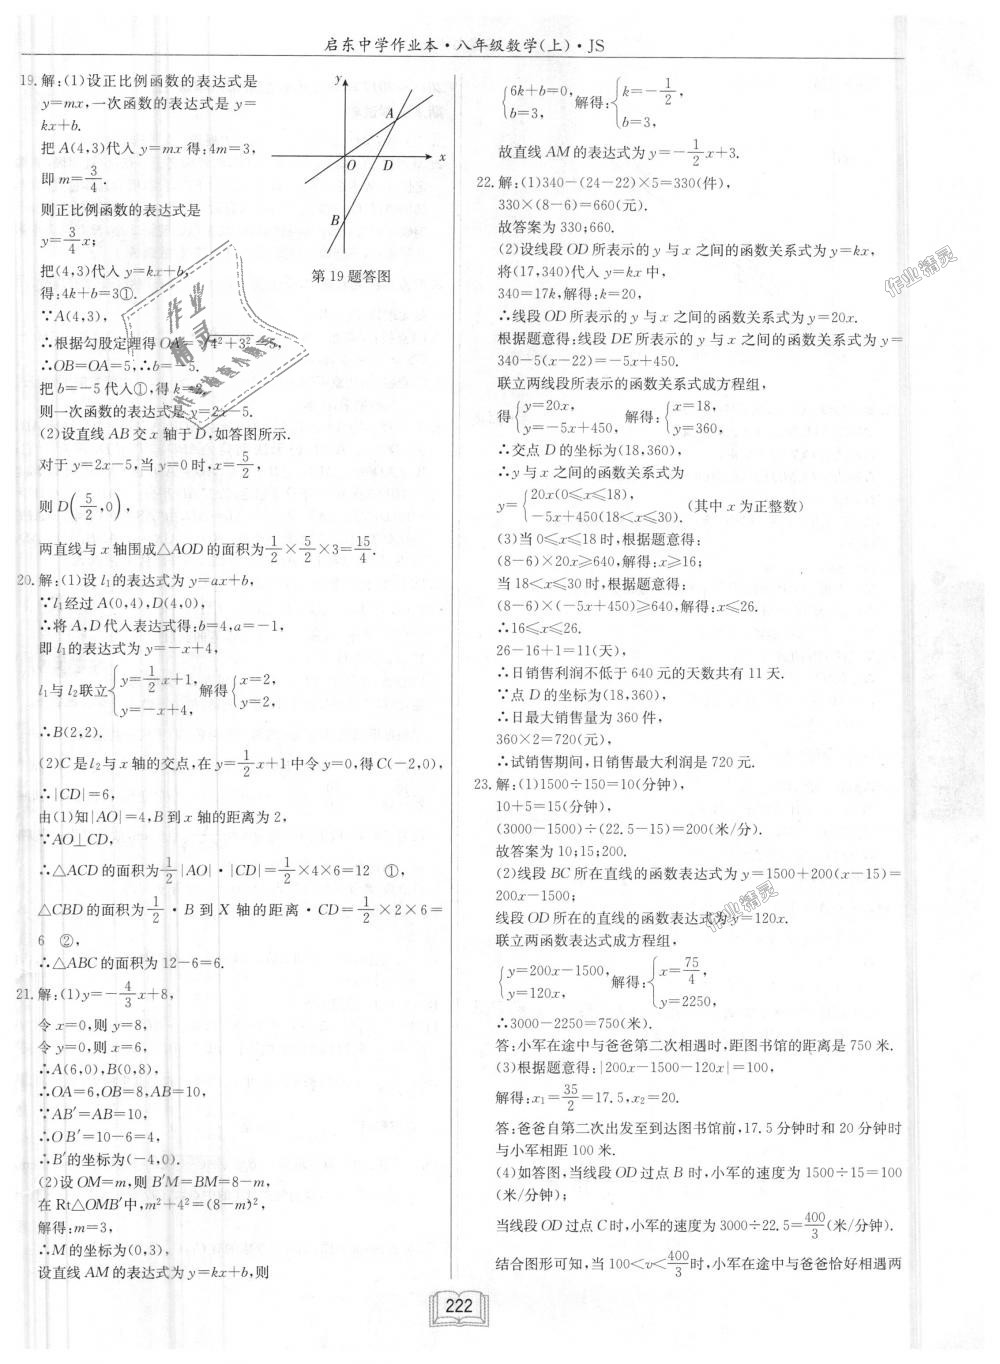 启东中学作业本·八年级数学(上)·JS
19. 解:(1)设正比例函数的表达式是
y=mx,一次函数的表达式是 y=
kx+b.
把 A(4,3)代入 y=mx 得:4m=3,
即 m=3/4.
则正比例函数的表达式是
y=3/4x;
把(4,3)代入 y=kx+b,
得:4k+b=3①.
∵A(4,3),
∴根据勾股定理得 OA=√4²+3²=5,
∴OB=OA=5,∴b=-5.
把 b=-5 代入①,得 k=2.
则一次函数的表达式是 y=2x-5.
y
A
O
D
x
B
第 19 题答图
(2)设直线 AB 交 x 轴于 D,如答图所示.
对于 y=2x-5,当 y=0 时,x=5/2,
则 D(5/2,0),
两直线与 x 轴围成△AOD 的面积为1/2×5/2×3=15/4.
20. 解:(1)设 l₁的表达式为 y=ax+b,
∵l₁经过 A(0,4),D(4,0),
∴将 A,D 代入表达式得:b=4,a=-1,
即 l₁的表达式为 y=-x+4,
l₁与 l₂联立{y=1/2x+1, y=-x+4, 解得{x=2, y=2,
∴B(2,2).
(2)C 是 l₂与 x 轴的交点,在 y=1/2x+1 中令 y=0,得 C(-2,0),
∴|CD|=6,
由(1)知|AO|=4,B 到 x 轴的距离为 2,
∵AO⊥CD,
∴△ACD 的面积为1/2|AO|·|CD|=1/2×4×6=12 ①,
△CBD 的面积为1/2·B 到 X 轴的距离·CD=1/2×2×6=
6 ②,
∴△ABC 的面积为 12-6=6.
21. 解:(1)y=-4/3x+8,
令 x=0,则 y=8,
令 y=0,则 x=6,
∴A(6,0),B(0,8),
∴OA=6,OB=8,AB=10,
∵AB′=AB=10,
∴OB′=10-6=4,
∴B′的坐标为(-4,0).
(2)设 OM=m,则 B′M=BM=8-m,
在 Rt△OMB′中,m²+4²=(8-m)²,
解得:m=3,
∴M 的坐标为(0,3),
设直线 AM 的表达式为 y=kx+b,则
{6k+b=0, b=3, 解得:{k=-1/2, b=3,
故直线 AM 的表达式为 y=-1/2x+3.
22. 解:(1)340-(24-22)×5=330(件),
330×(8-6)=660(元).
故答案为 330;660.
(2)设线段 OD 所表示的 y 与 x 之间的函数关系式为 y=kx,
将(17,340)代入 y=kx 中,
340=17k,解得:k=20,
∴线段 OD 所表示的 y 与 x 之间的函数关系式为 y=20x.
根据题意得:线段 DE 所表示的 y 与 x 之间的函数关系式为 y=
340-5(x-22)=-5x+450.
联立两线段所表示的函数关系式成方程组,
得{y=20x, y=-5x+450, 解得:{x=18, y=360,
∴交点 D 的坐标为(18,360),
∴y 与 x 之间的函数关系式为
y={20x(0≤x≤18), -5x+450(18<x≤30). (其中 x 为正整数)
(3)当 0≤x≤18 时,根据题意得:
(8-6)×20x≥640,解得:x≥16;
当 18<x≤30 时,根据题意得:
(8-6)×(-5x+450)≥640,解得:x≤26.
∴16≤x≤26.
26-16+1=11(天),
∴日销售利润不低于 640 元的天数共有 11 天.
∵点 D 的坐标为(18,360),
∴日最大销售量为 360 件,
360×2=720(元),
∴试销售期间,日销售最大利润是 720 元.
23. 解:(1)1500÷150=10(分钟),
10+5=15(分钟),
(3000-1500)÷(22.5-15)=200(米/分).
故答案为 10;15;200.
(2)线段 BC 所在直线的函数表达式为 y=1500+200(x-15)=
200x-1500;
线段 OD 所在的直线的函数表达式为 y=120x.
联立两函数表达式成方程组,
{y=200x-1500, y=120x, 解得:{x=75/4, y=2250,
∴3000-2250=750(米).
答:小军在途中与爸爸第二次相遇时,距图书馆的距离是 750 米.
(3)根据题意得:|200x-1500-120x|=100,
解得:x₁=35/2=17.5,x₂=20.
答:爸爸自第二次出发至到达图书馆前,17.5 分钟时和 20 分钟时
与小军相距 100 米.
(4)如答图,当线段 OD 过点 B 时,小军的速度为 1500÷15=100
(米/分钟);
当线段 OD 过点 C 时,小军的速度为 3000÷22.5=400/3(米/分钟).
结合图形可知,当 100<v<400/3时,小军在途中与爸爸恰好相遇两
222
作业精灵
作业精灵
作业
精灵